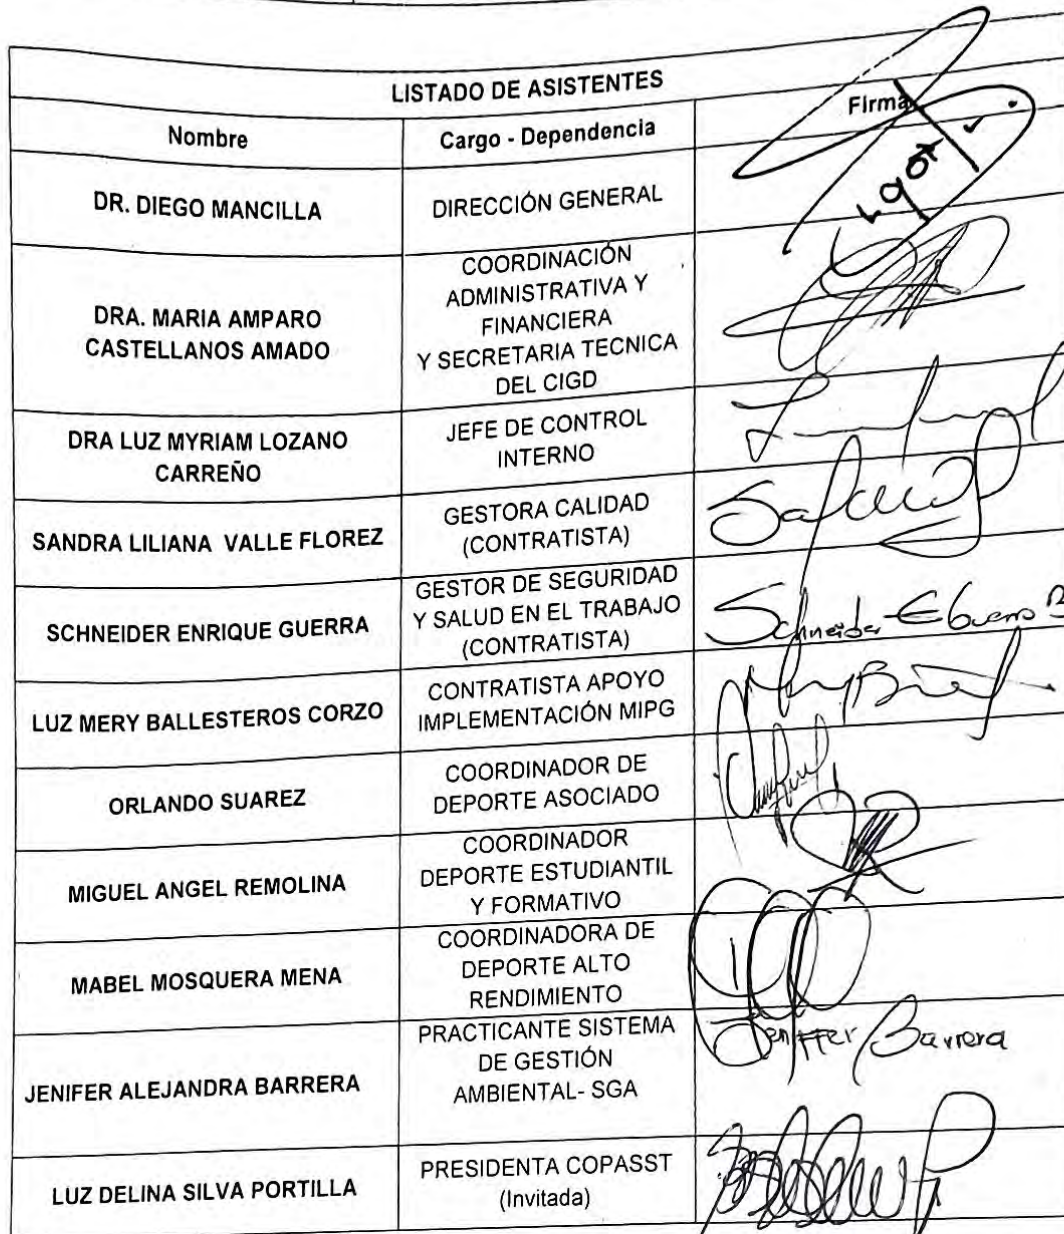 LISTADO DE ASISTENTES
Nombre
Cargo - Dependencia
Firma
DR. DIEGO MANCILLA
DIRECCIÓN GENERAL
DRA. MARIA AMPARO
CASTELLANOS AMADO
COORDINACIÓN
ADMINISTRATIVA Y
FINANCIERA
Y SECRETARIA TECNICA
DEL CIGD
DRA LUZ MYRIAM LOZANO
CARREÑO
JEFE DE CONTROL
INTERNO
SANDRA LILIANA VALLE FLOREZ
GESTORA CALIDAD
(CONTRATISTA)
SCHNEIDER ENRIQUE GUERRA
GESTOR DE SEGURIDAD
Y SALUD EN EL TRABAJO
(CONTRATISTA)
Schneider
LUZ MERY BALLESTEROS CORZO
CONTRATISTA APOYO
IMPLEMENTACIÓN MIPG
ORLANDO SUAREZ
COORDINADOR DE
DEPORTE ASOCIADO
MIGUEL ANGEL REMOLINA
COORDINADOR
DEPORTE ESTUDIANTIL
Y FORMATIVO
MABEL MOSQUERA MENA
COORDINADORA DE
DEPORTE ALTO
RENDIMIENTO
JENIFER ALEJANDRA BARRERA
PRACTICANTE SISTEMA
DE GESTIÓN
AMBIENTAL- SGA
Jeniffer Barrera
LUZ DELINA SILVA PORTILLA
PRESIDENTA COPASST
(Invitada)